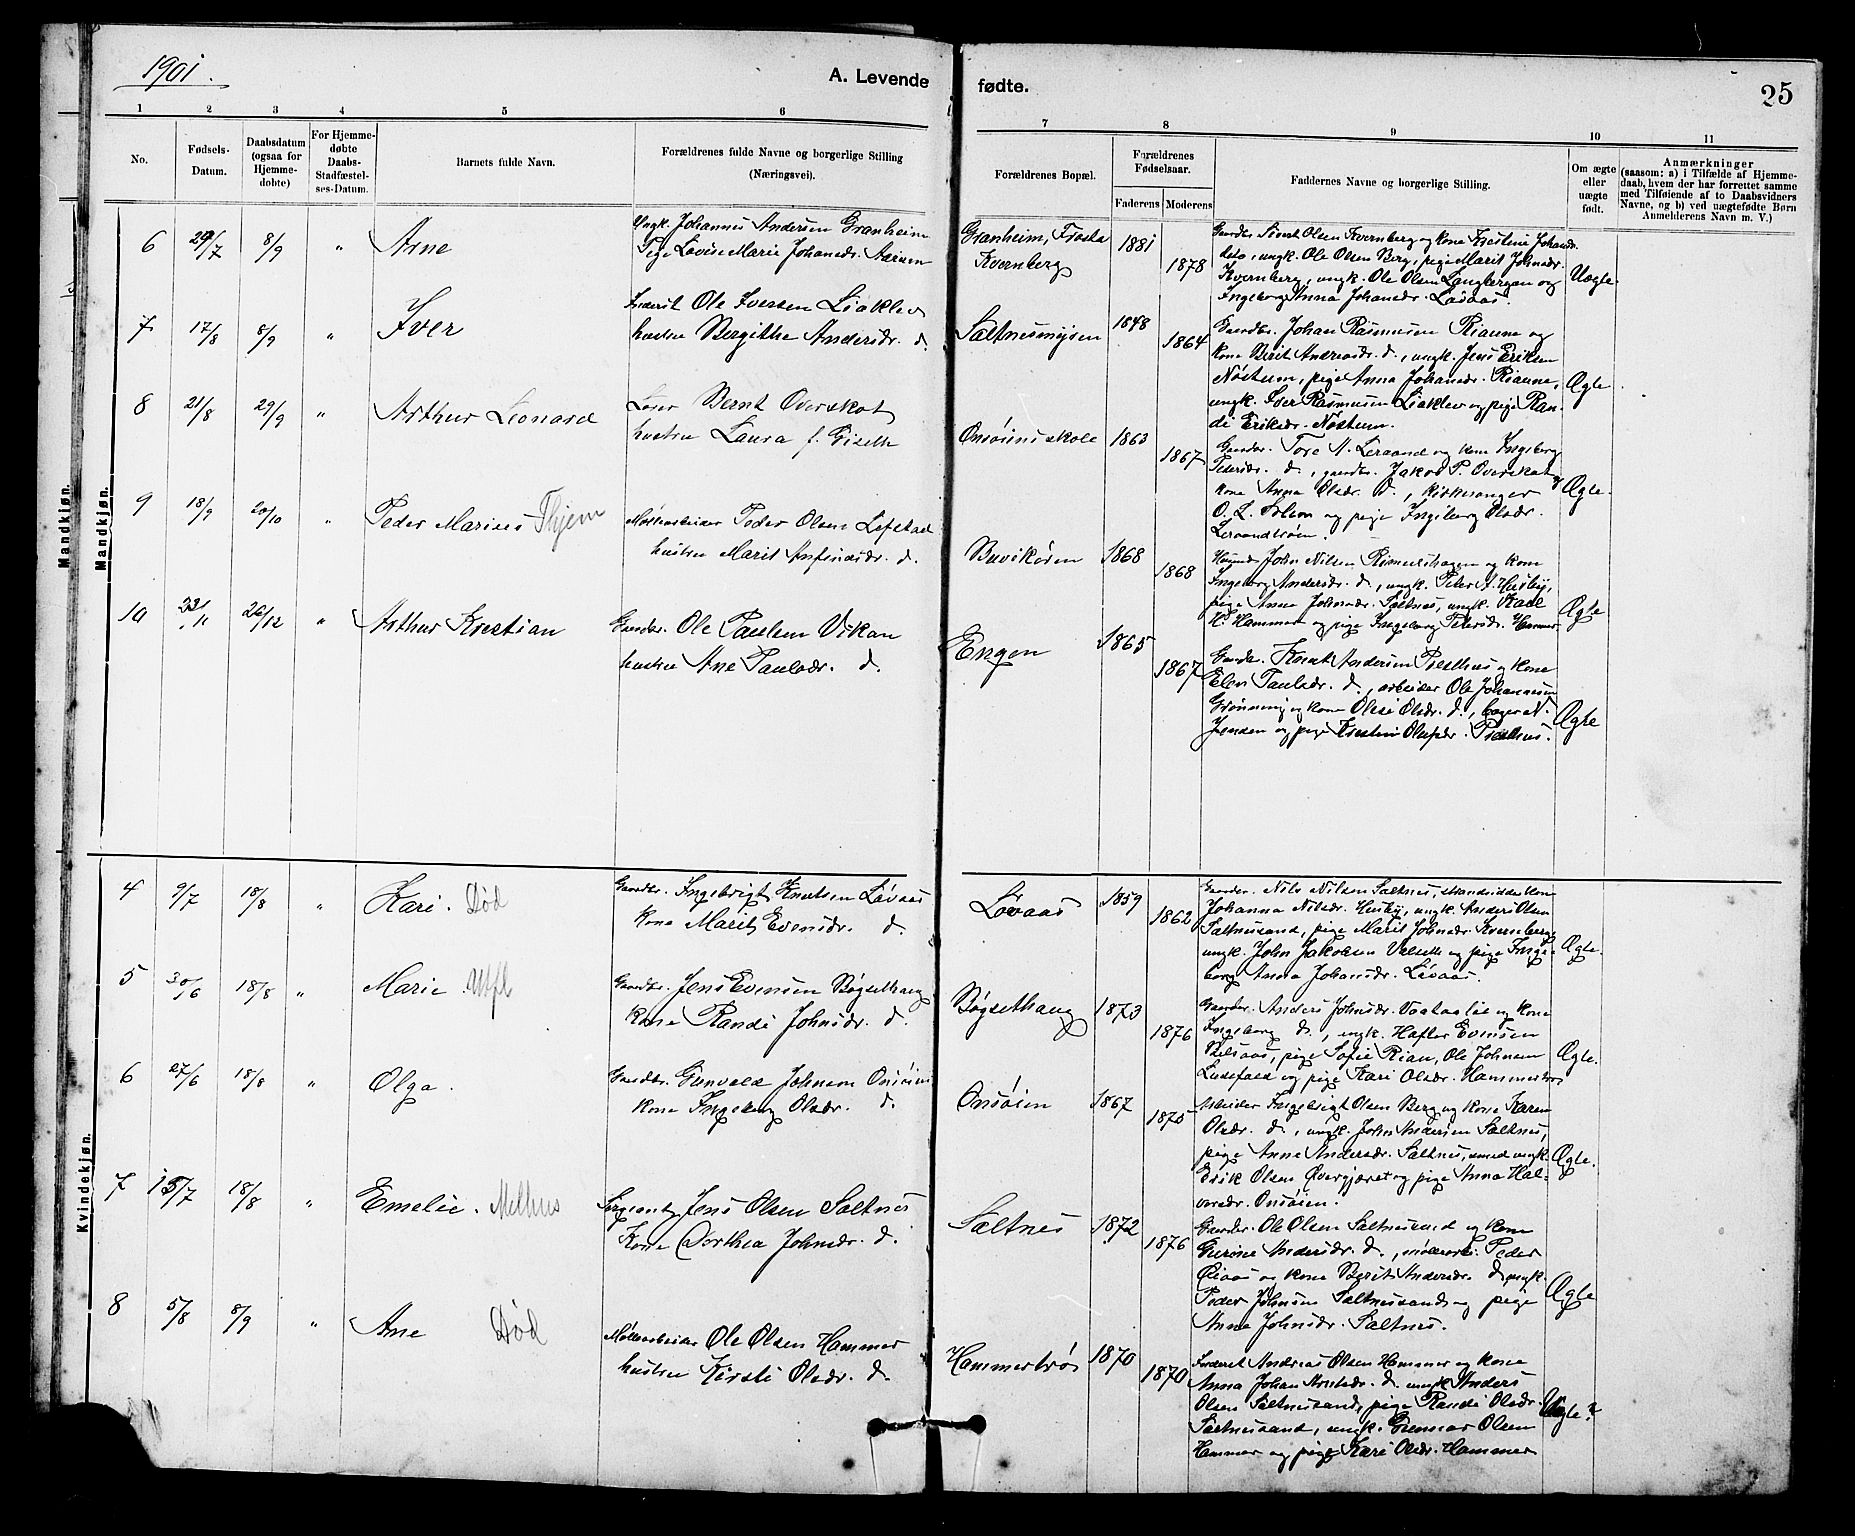 1901.
A. Levende fødte.
25
1 2 3 4 5 6 7 8 9 10 11
No.
Fødsels-
Datum.
Daabsdatum
(ogsaa for
Hjemme-
døbte)
For Hjemme-
døbte
Daabs-
Stadfæstel-
ses-Datum.
Barnets fulde Navn.
Forældrenes fulde Navne og borgerlige Stilling
(Næringsvei).
Forældrenes Bopæl.
Forældrenes
Fødselsaar.
Faderens Moderens
Faddernes Navne og borgerlige Stilling.
Om ægte
eller
uægte
født.
Anmærkninger
(saasom: a) i Tilfælde af Hjemme-
daab, hvem der har forrettet samme
med Tilføiende af to Daabsvidners
Navne, og b) ved uægtefødte Børn
Anmelderens Navn m. V.)
Mandkjøn.
Mandkjøn.
6 /7 8/9 " Arne
Ungk. Johannes Andersen Granheim
Pige Lovise Marie Johansdr.
Granheim, Frosta
Kvernberg
1881
1878
Gaardbr. Sivert Olsen Kvernberg og kone Kjestine Johansdr.
ungk. Ole Olsen Berg, pige Marit Johnsdr.
Kvernberg, ungk. Ole Olsen Langbergan og
Ingeborg Anna Johansdr. Løvaas.
Uægte.
7 17/8 8/9 " Iver
Inderst Ole Iversen Liaklev
hustru Bergithe Andersdr. d.
Saltnesmyren
1848
1864
Gaardbr. Johan Rasmusen Rianne og
kone Berit Andreasdr. d., ungk. Jens Eriksen
Nøstum, pige Anna Johansdr. Rianne,
ungk. Iver Rasmusen Liaklev og pige Ran-
di Eriksdr. Nøstum.
Ægte
8 21/8 29/9 " Arthur Leonard
Lærer Bernt Overskot
hustru Laura f. Giseth
Onsøiens skole
1863
1867
Gaardbr. Tore A. Leraand og kone Ingeborg
Pedersdr. d., gaardbr. Jakob P. Overskot og
kone Anna Olsdr. d., kirkesanger
O. L. Solem og pige Ingeborg Olsdr.
Leraandtrøen.
Ægte.
9 18/9 20/10 " Peder Marines Thjem
Møllearbeider Peder Olsen Lefstad
hustru Marit Arfinsdr. d.
Buvikøren
1868
1868
John Nilsen Rimmershagen og kone
Ingeborg Andersdr. d., ungk. Peter A. Husby,
pige Anna Johnsdr. Saltnes, ungk. Karl
K. Hammer og pige Ingeborg Petersdr. Hammer
Ægte
10 /11 26/12 " Arthur Kristian
Gaardbr. Ole Paulsen Vikan
hustru Ane Paulsdr. d.
Engen
1865
1867
Gaardbr. Knut Andersen Presthus og kone
Elen Paulsdr. d., arbeider Ole Johannesen
Grønning og kone Olese Olsdr. d., bager N.
Jensen og pige Kristine Olufsdr. Presthus.
Ægte
Kvindekjøn.
4 9/7 18/8 " Kari. Død
Gaardbr. Ingebrigt Knutsen Løvaas
kone Marit Evensdr. d.
Løvaas
1859
1862
Gaardbr. Nils Nilsen Saltnes, strandsidderkone
Johanna Nilsdr. Husby, ungk. Anders Olsen
Saltnessand, pige Marit Johnsdr. Kvernberg,
ungk. John Jakobsen Valseth og pige Inge-
borg Anna Johansdr. Løvaas.
Ægte.
5 30/6 18/8 " Marie. Utfl
Gaardbr. Jens Evensen Bøgsethaug
kone Randi Johnsdr. d.
Bøgsethaug
1873
1876
Gaardbr. Anders Johnsdr. Vaataalie og kone
Ingeborg d., ungk. Hafter Evensen
Belsaas, pige Sofie Rian, Ole Johnsen
Lindefald og pige Kari Olsdr. Hammertrø
Ægte.
6 27/6 18/8 " Olga.
Gaardbr. Gunvald Johnsen Onsøien
kone Ingeborg Olsdr. d.
Onsøien
1867
1875
Arbeider Ingebrigt Olsen Berg og kone Karen
Olsdr. d., ungk. John Andersen Saltnes,
pige Anne Andersdr. Saltnes, smed ungk.
Erik Olsen Øvergjæret og pige Anna Hal-
vorsdr. Onsøien.
Ægte.
7 15/7 18/8 " Emelie. Melhus
Sergeant Jens Olsen Saltnes
Kone Dorthea Johnsdr. d.
Saltnes
1872
1876
Gaardbr. Ole Olsen Saltnessand og kone
Gurine Andersdr. d., møllearb. Peder
Øiaas og kone Berit Andersdr. d., ungk.
Peder Johnsen Saltnessand og pige
Anne Johnsdr. Saltnes.
Ægte
8 5/8 8/9 " Ane Død
Møllearbeider Ole Olsen Hammer
hustru Kirsti Olsdr. d.
Hammertrø
1870
1870
Inderst Andreas Olsen Hammer og kone
Anna Johan Arntsdr. d. ungk. Anders
Olsen Saltnessand, pige Randi Olsdr.
Saltnessand, ungk. Gunnar Olsen
Hammer og pige Kari Olsdr. Hammer
Ægte.